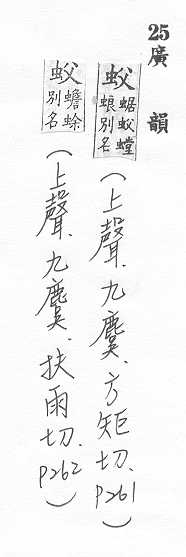 25廣韻
蚥 蜛蚥螳蜋別名（上聲．九麌．方矩切．P261）
蚥 蟾蜍別名（上聲．九麌．扶雨切．P262）